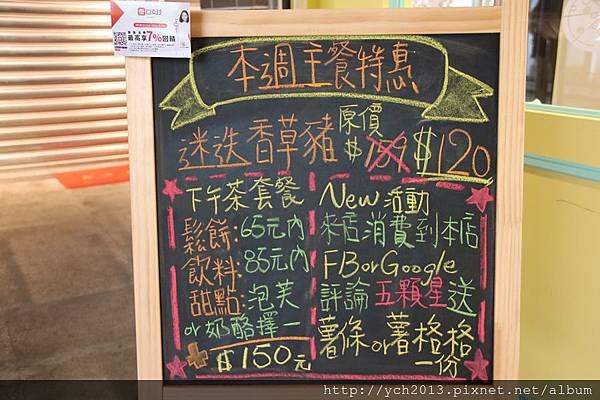 最高享7%回饋
本週主餐特惠
迷迭香草豬 原價$169 $120
下午茶套餐
鬆餅:65元內
飲料:85元內
甜點:泡芙
or 奶酪擇一
+ $150元
New 活動
來店消費到本店
FB or Google
評論五顆星送
薯條 or 薯格格
一份
http://ych2013.pixnet.net/album